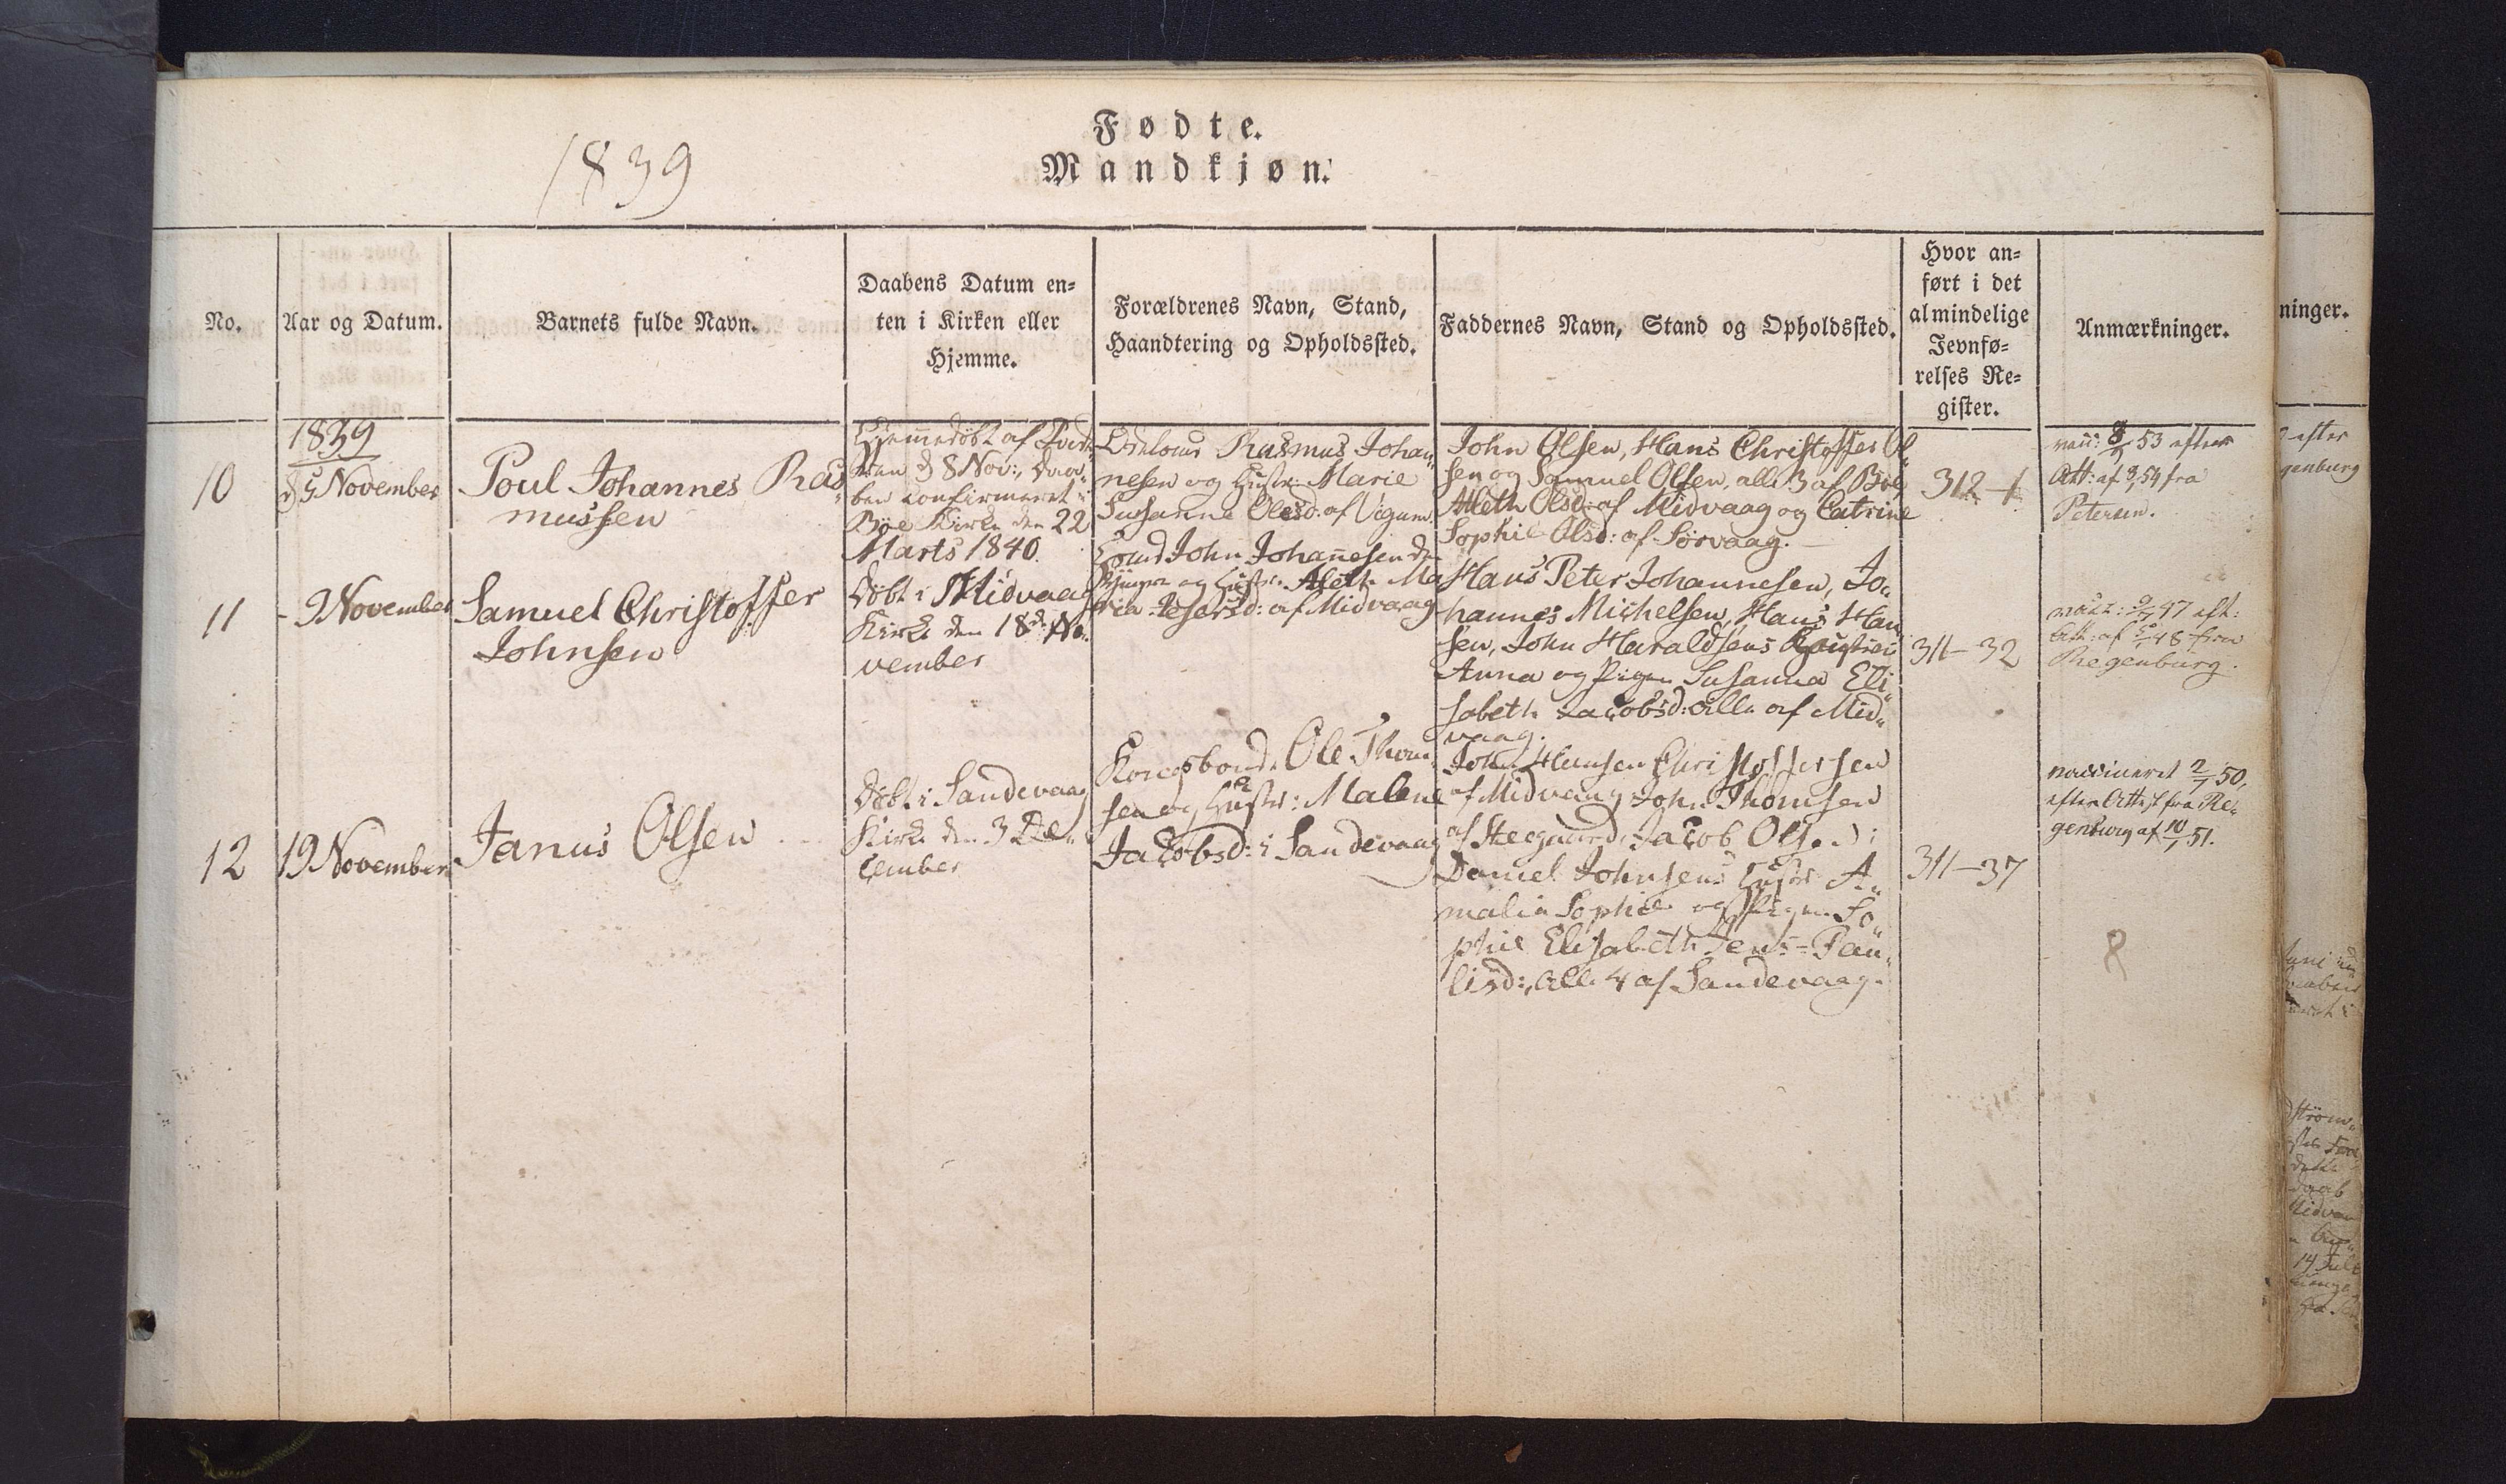 Fødte.
1839
Mandkjøn.
No.
Aar og Datum.
Barnets fulde Navn.
Daabens Datum en=
ten i Kirken eller
Hjemme.
Forældrenes Navn, Stand,
Haandtering og Opholdssted.
Faddernes Navn, Stand og Opholdssted.
Hvor an=
ført i det
almindelige
Jevnfø=
relses Re=
gister.
Anmærkninger.
10
1839
d 5 November
Poul Johannes Ras„
mussen
Hjemmedøbt af
d 8 Nov:, Daa„
ben confirmeret i
Bøe Kirke den 22
Marts 1840.
Rasmus Johan„
nesen og Hustr: Marie
Susanne Olesd: af
John Olsen, Hans Christoffer Ol„
sen og Samuel Olsen, alle 3 af Bøe,
Aleth Olsd: af Midvaag og Catrine
Sophie Olsd: af Sørvaag.
312-1
53 efter
Att: af fra
Petersen.
11
- 9 November
Samuel Christoffer
Johnsen
Døbt i Midvaag
Kirke den 18d: No„
vember
John Johanesen
og Hustr: Aleth Ma
ria af Midvaag
Hans Peter Johannesen, Jo„
hannes Michelsen, Hans Han„
sen, John Haraldsens Hustrue
Anna og Pigen Susanna Eli„
sabeth Jacobsd: alle af Mid„
vaag.
311-32
47 eft:
Att: af 48 fra
Regenburg.
12
19 November
Janus Olsen
Døbt i Sandevaag
Kirke den 3 De„
cember
Kongsbonde Ole Thom„
sen og Hustr: Malene
Jacobsd: i Sandevaag
John Hansen Christoffersen
af Midvaag, John Thomsen
af Steegaard, Jacob Olsen,
Daniel Johnsens Hustr A„
malia Sophie og Pigen So„
phie Elisabeth Jens=Pau„
lisd:, alle 4 af Sandevaag.
311-37
vaccineret 2/7 50,
efter Attest fra Re„
genburg af 10/7 51.
8
ninger.
efter
genburg